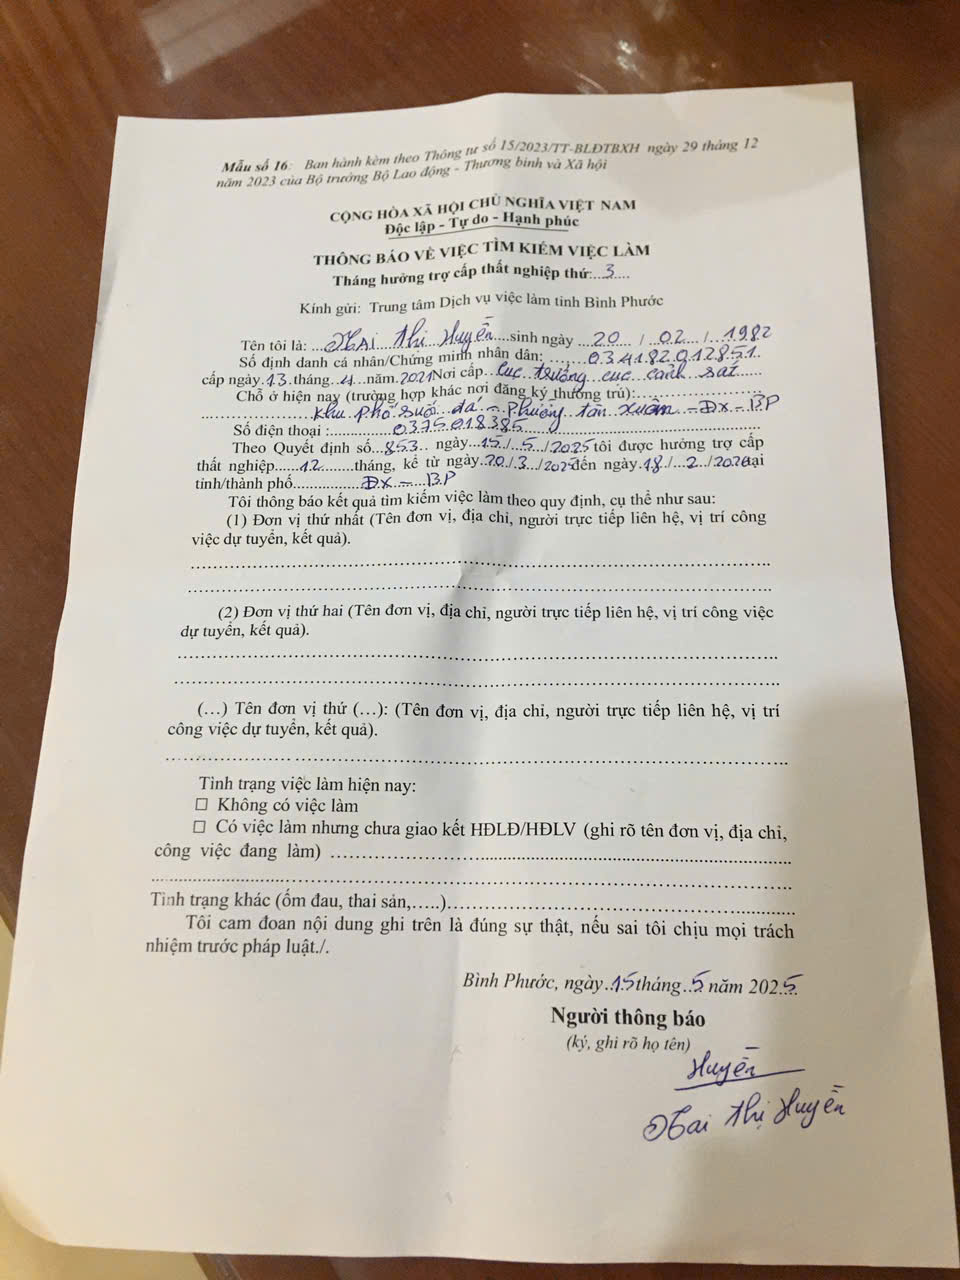 Mẫu số 16: Ban hành kèm theo Thông tư số 15/2023/TT-BLĐTBXH ngày 29 tháng 12
năm 2023 của Bộ trưởng Bộ Lao động - Thương binh và Xã hội
CỘNG HÒA XÃ HỘI CHỦ NGHĨA VIỆT NAM
Độc lập - Tự do - Hạnh phúc
THÔNG BÁO VỀ VIỆC TÌM KIẾM VIỆC LÀM
Tháng hưởng trợ cấp thất nghiệp thứ:...3....
Kính gửi: Trung tâm Dịch vụ việc làm tỉnh Bình Phước
Tên tôi là: ...Mai Thị Huyền....sinh ngày ...20... / ...02... / ...1982
Số định danh cá nhân/Chứng minh nhân dân: ......034182012851.
cấp ngày.13.tháng..4...năm.2021Nơi cấp..cục trưởng cục cảnh sát......
Chỗ ở hiện nay (trường hợp khác nơi đăng ký thường trú):..............
khu phố suối đá - Phường tân xuân - ĐX - BP
Số điện thoại :............0375018385
Theo Quyết định số..853.. ngày..15./..5./2025tôi được hưởng trợ cấp
thất nghiệp.....12........tháng, kể từ ngày.20./.3../2025đến ngày.18./...2../2026tại
tỉnh/thành phố............ĐX - BP
Tôi thông báo kết quả tìm kiếm việc làm theo quy định, cụ thể như sau:
(1) Đơn vị thứ nhất (Tên đơn vị, địa chỉ, người trực tiếp liên hệ, vị trí công
việc dự tuyển, kết quả).
(2) Đơn vị thứ hai (Tên đơn vị, địa chỉ, người trực tiếp liên hệ, vị trí công việc
dự tuyển, kết quả).
(…) Tên đơn vị thứ (…): (Tên đơn vị, địa chỉ, người trực tiếp liên hệ, vị trí
công việc dự tuyển, kết quả).
Tình trạng việc làm hiện nay:
☐ Không có việc làm
☐ Có việc làm nhưng chưa giao kết HĐLĐ/HĐLV (ghi rõ tên đơn vị, địa chỉ,
công việc đang làm) ................................................
Tình trạng khác (ốm đau, thai sản,…..)................................................
Tôi cam đoan nội dung ghi trên là đúng sự thật, nếu sai tôi chịu mọi trách
nhiệm trước pháp luật./.
Bình Phước, ngày..15tháng..5 năm 2025
Người thông báo
(ký, ghi rõ họ tên)
Huyền
Mai Thị Huyền